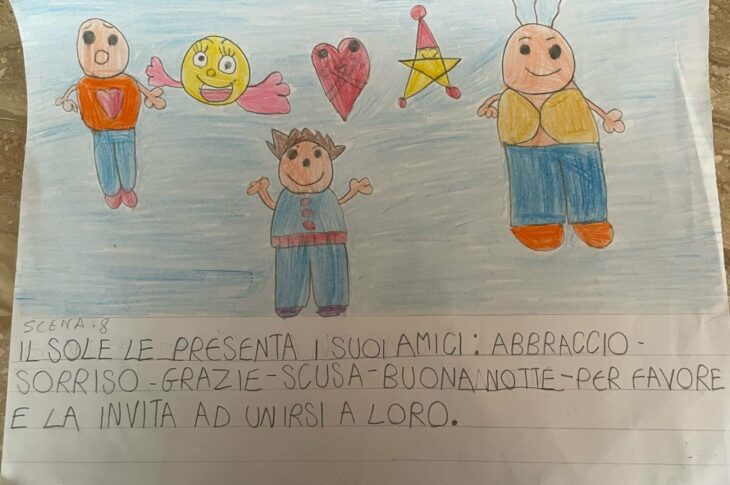 SCENA: 8
IL SOLE LE PRESENTA I SUOI AMICI: ABBRACCIO-
SORRISO-GRAZIE-SCUSA-BUONANOTTE-PER FAVORE
E LA INVITA AD UNIRSI A LORO.